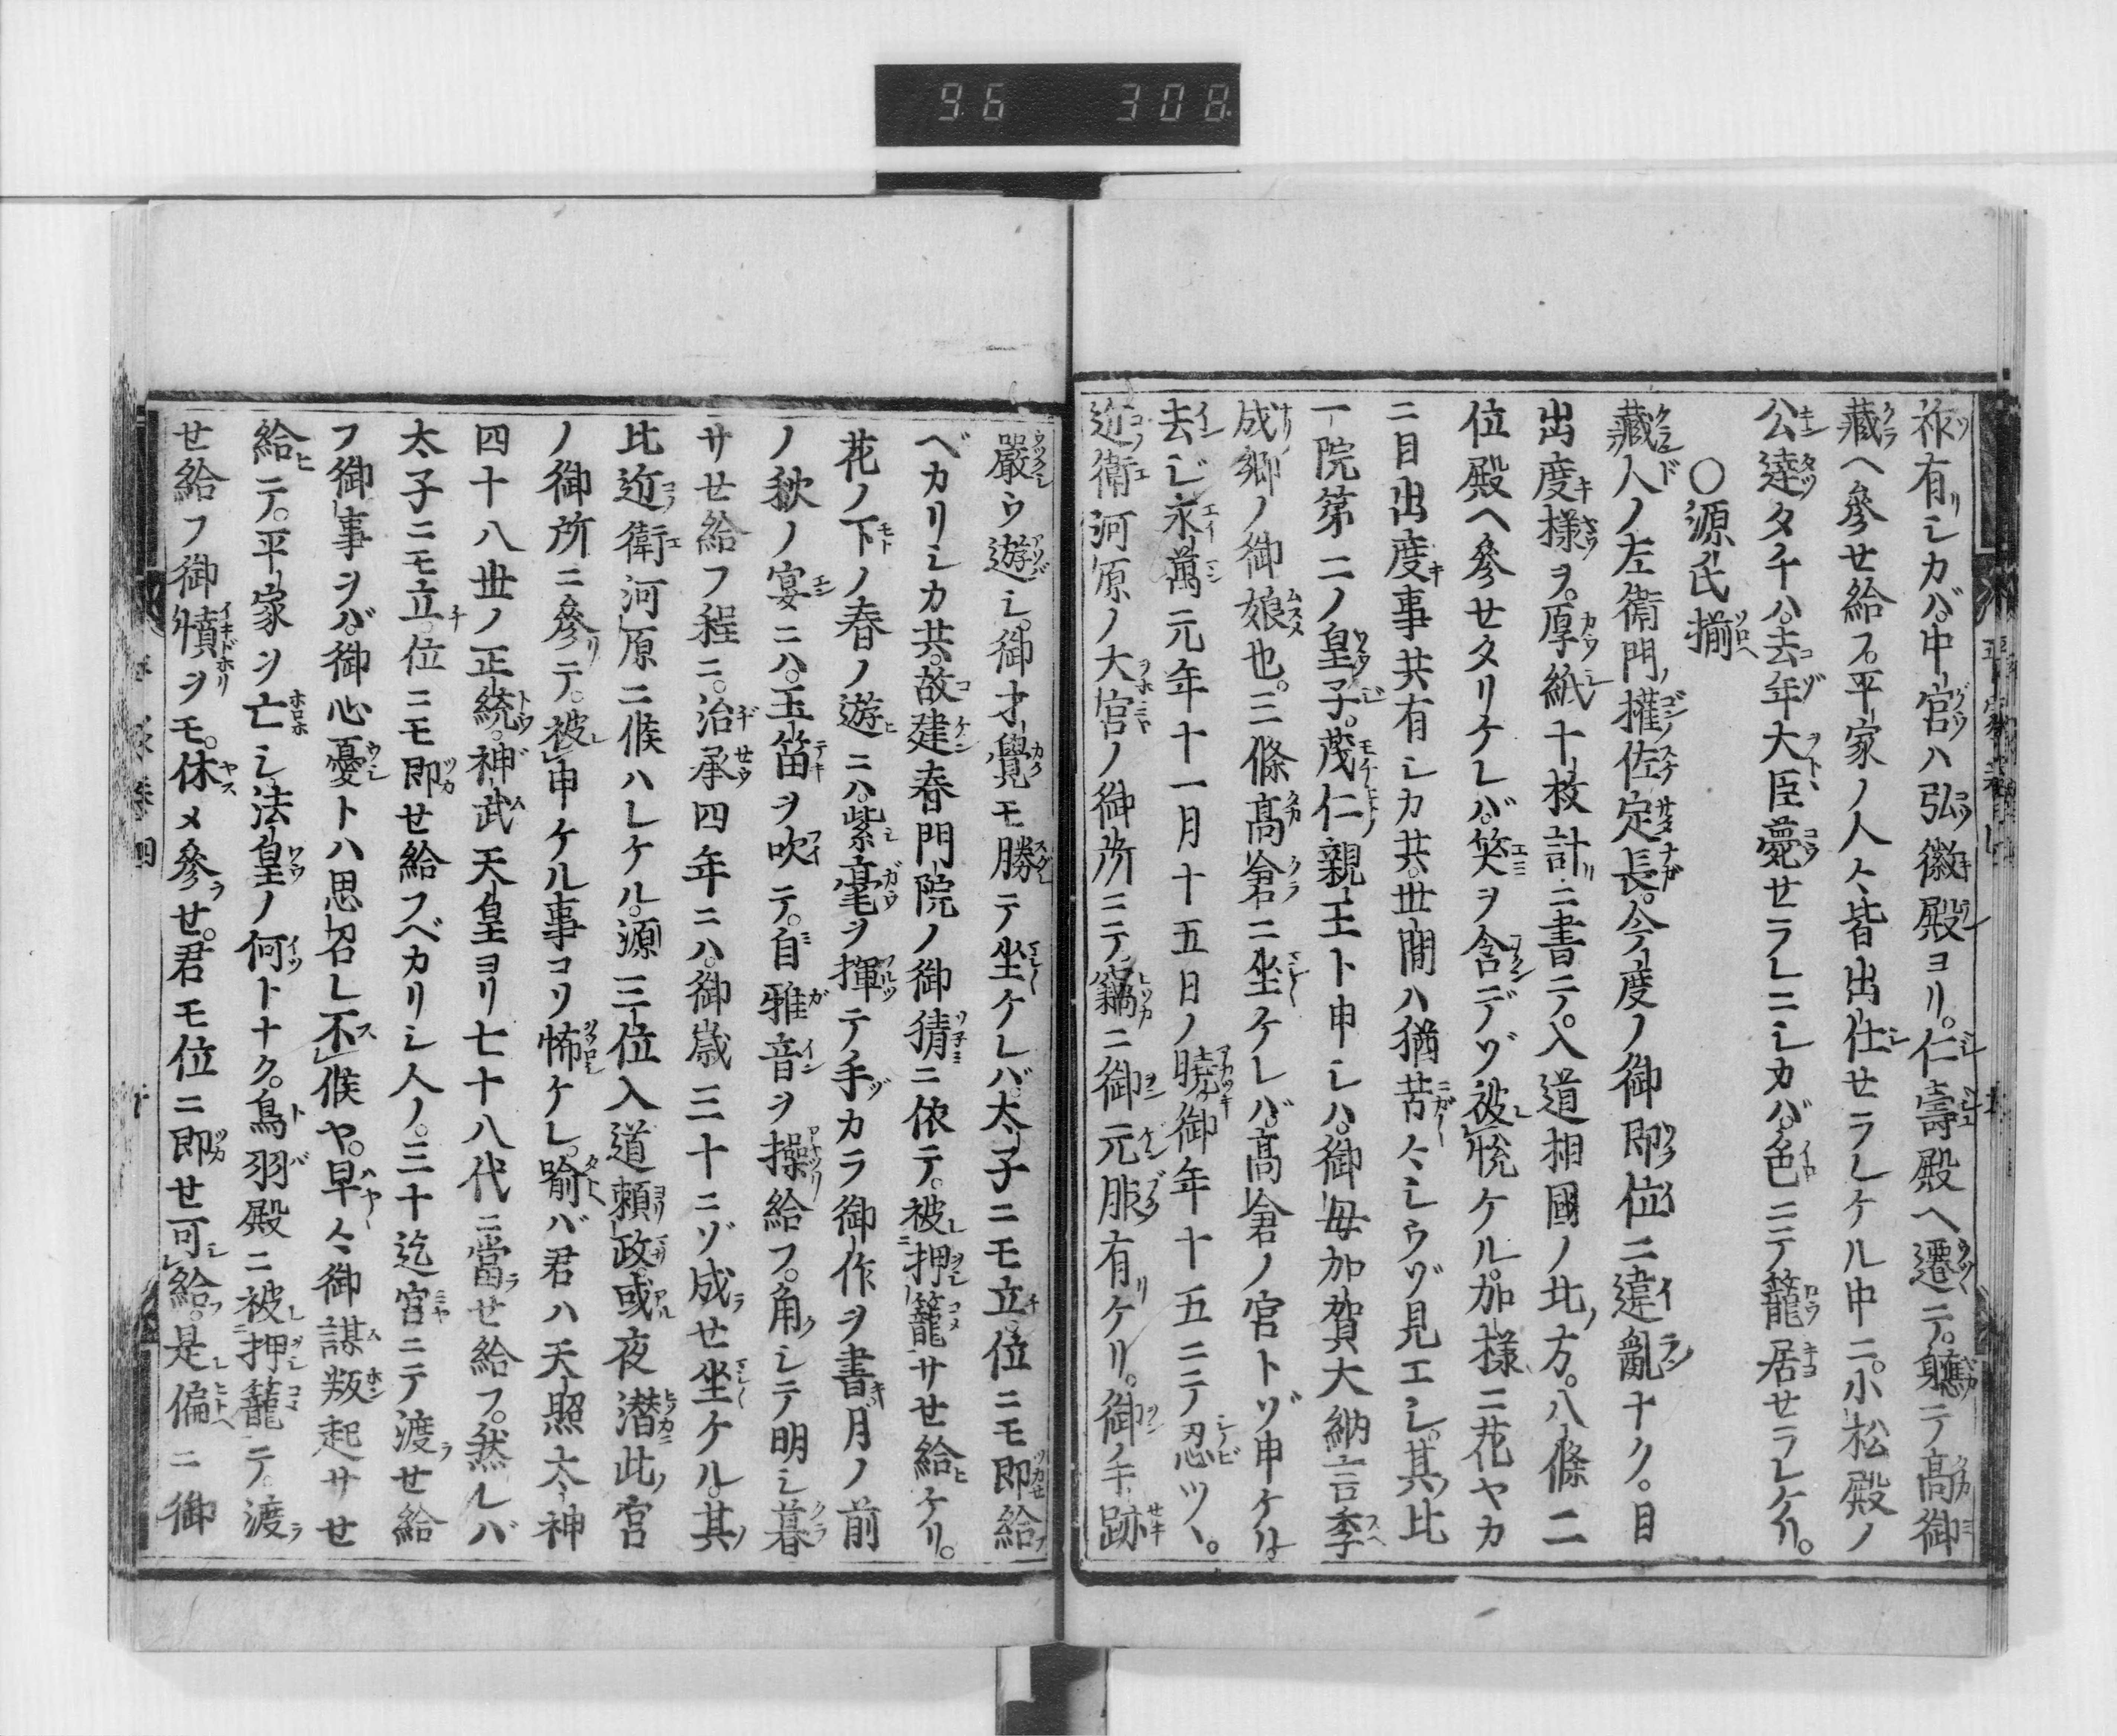 96 308
祚有シカバ。中宮ハ弘徽殿ヨリ。仁壽殿ヘ遷テ。軈テ高御
藏ヘ參せ給フ。平家ノ人々皆出仕せラレケル中ニ。小松殿ノ
公達タチハ。去年大臣薨せラレニシカバ。色ニテ籠居せラレケリ。
〇源氏揃
藏人ノ左衞門權佐定長。今度ノ御即位ニ違亂ナク。目
出度樣ヲ。厚紙十枚計ニ書テ。入道相國ノ北ノ方。八條二
位殿ヘ參せタリケレバ。笑ヲ含デゾ被悅ケル。加樣ニ花ヤカ
ニ目出度事共有シカ共。世間ハ猶苦々シウゾ見エシ。其比
一院第二ノ皇子。茂仁親王ト申シハ。御母加賀大納言季
成卿ノ御娘也。三條高倉ニ坐ケレバ。高倉ノ宮トゾ申ケル。
去じ永萬元年十一月十五日ノ曉。御年十五ニテ忍ツヽ。
近衞河原ノ大宮ノ御所ニテ。竊ニ御元服有ケリ。御手跡
嚴ウ遊シ。御才覺モ勝テ坐ケレバ。太子ニモ立。位ニモ即給
ベカリシカ共。故建春門院ノ御猜ニ依テ。被押籠サせ給ケリ。
花ノ下ノ春ノ遊ニハ。紫毫ヲ揮テ手カラ御作ヲ書。月ノ前
ノ秋ノ宴ニハ。玉笛ヲ吹テ。自雅音ヲ操給フ。角シテ明シ暮
サせ給フ程ニ。治承四年ニハ。御歳三十ニゾ成せ坐ケル。其
比近衞河原ニ候ハレケル。源三位入道賴政。或夜潜此ノ宮
ノ御所ニ參リテ。被申ケル事コソ怖ケレ。喩バ君ハ天照太神
四十八世ノ正統。神武天皇ヨリ七十八代ニ當せ給フ。然レバ
太子ニモ立。位ニモ即せ給フベカリシ人ノ。三十迄宮ニテ渡せ給
フ御事ヲバ。御心憂トハ思召レ不候ヤ。早々御謀叛起サせ
給ヒテ。平家ヲ亡シ法皇ノ何トナク。鳥羽殿ニ被押籠テ。渡
せ給フ御憤ヲモ。休メ參せ。君モ位ニ即せ可給。是偏ニ御